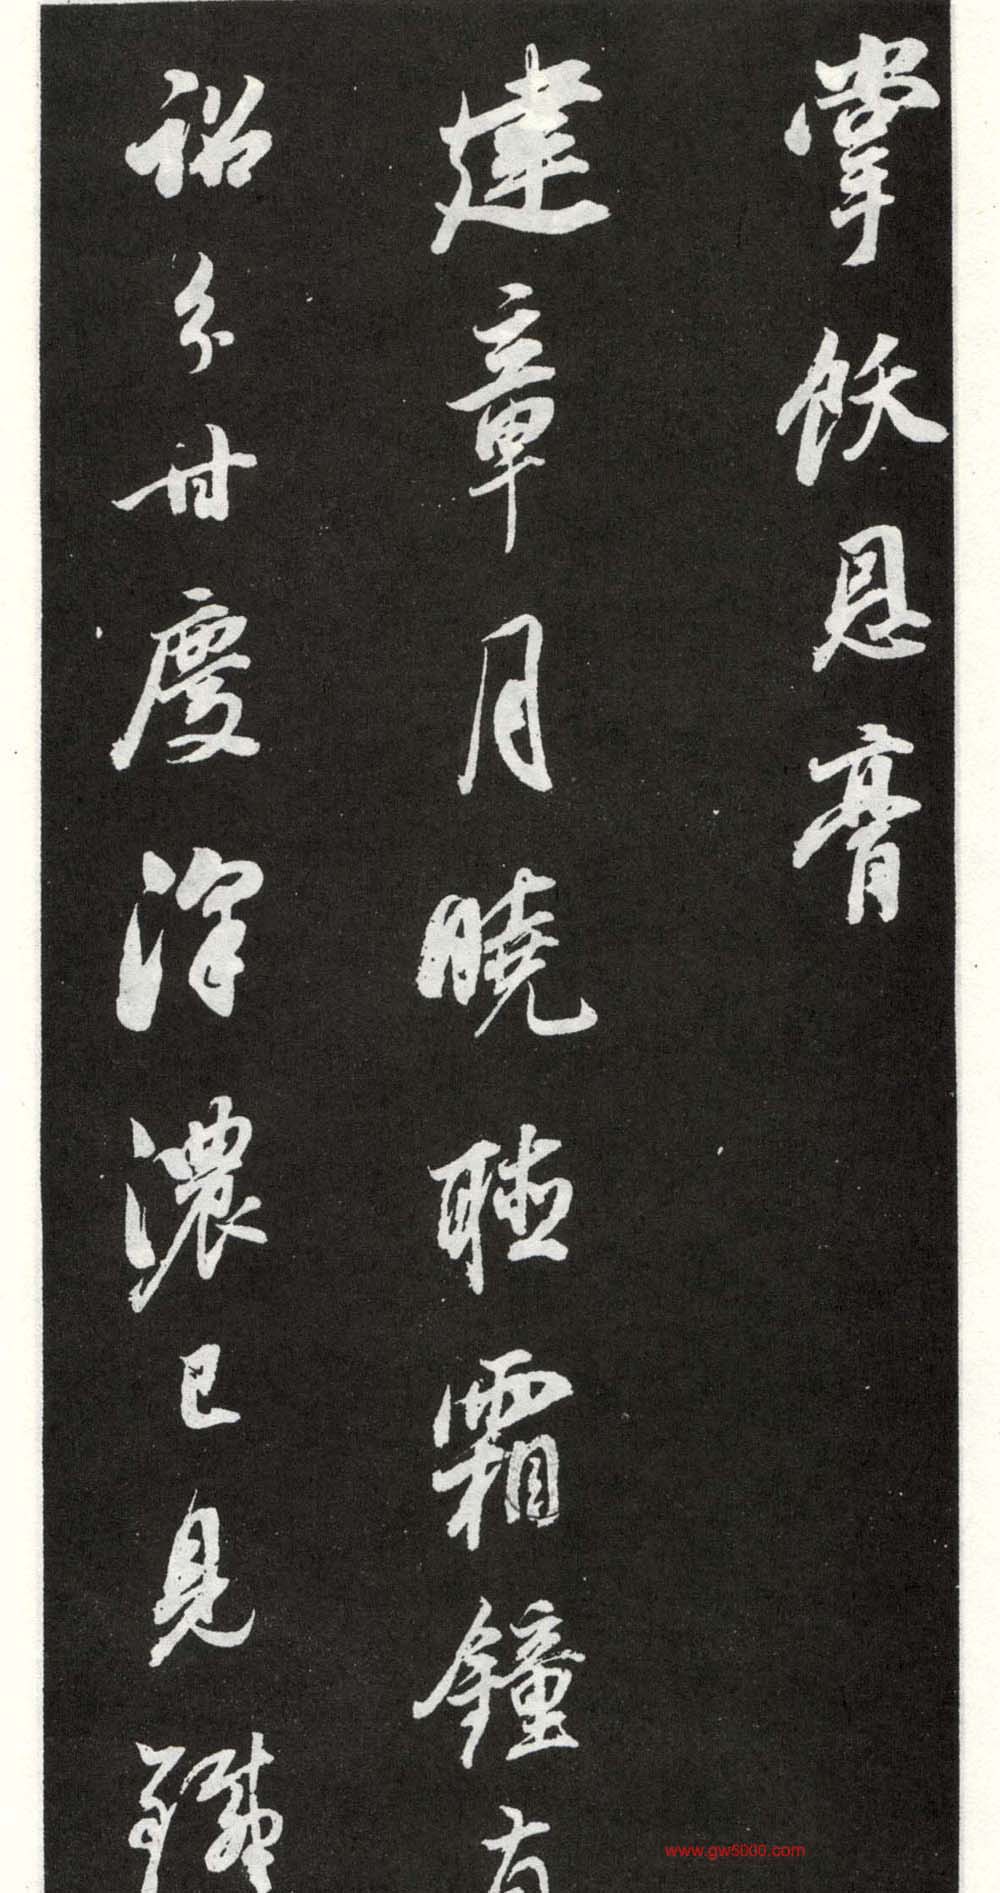 掌飫恩膏
建章月曉聽霜鐘有
詔分甘慶深濃已見
www.gw5000.com